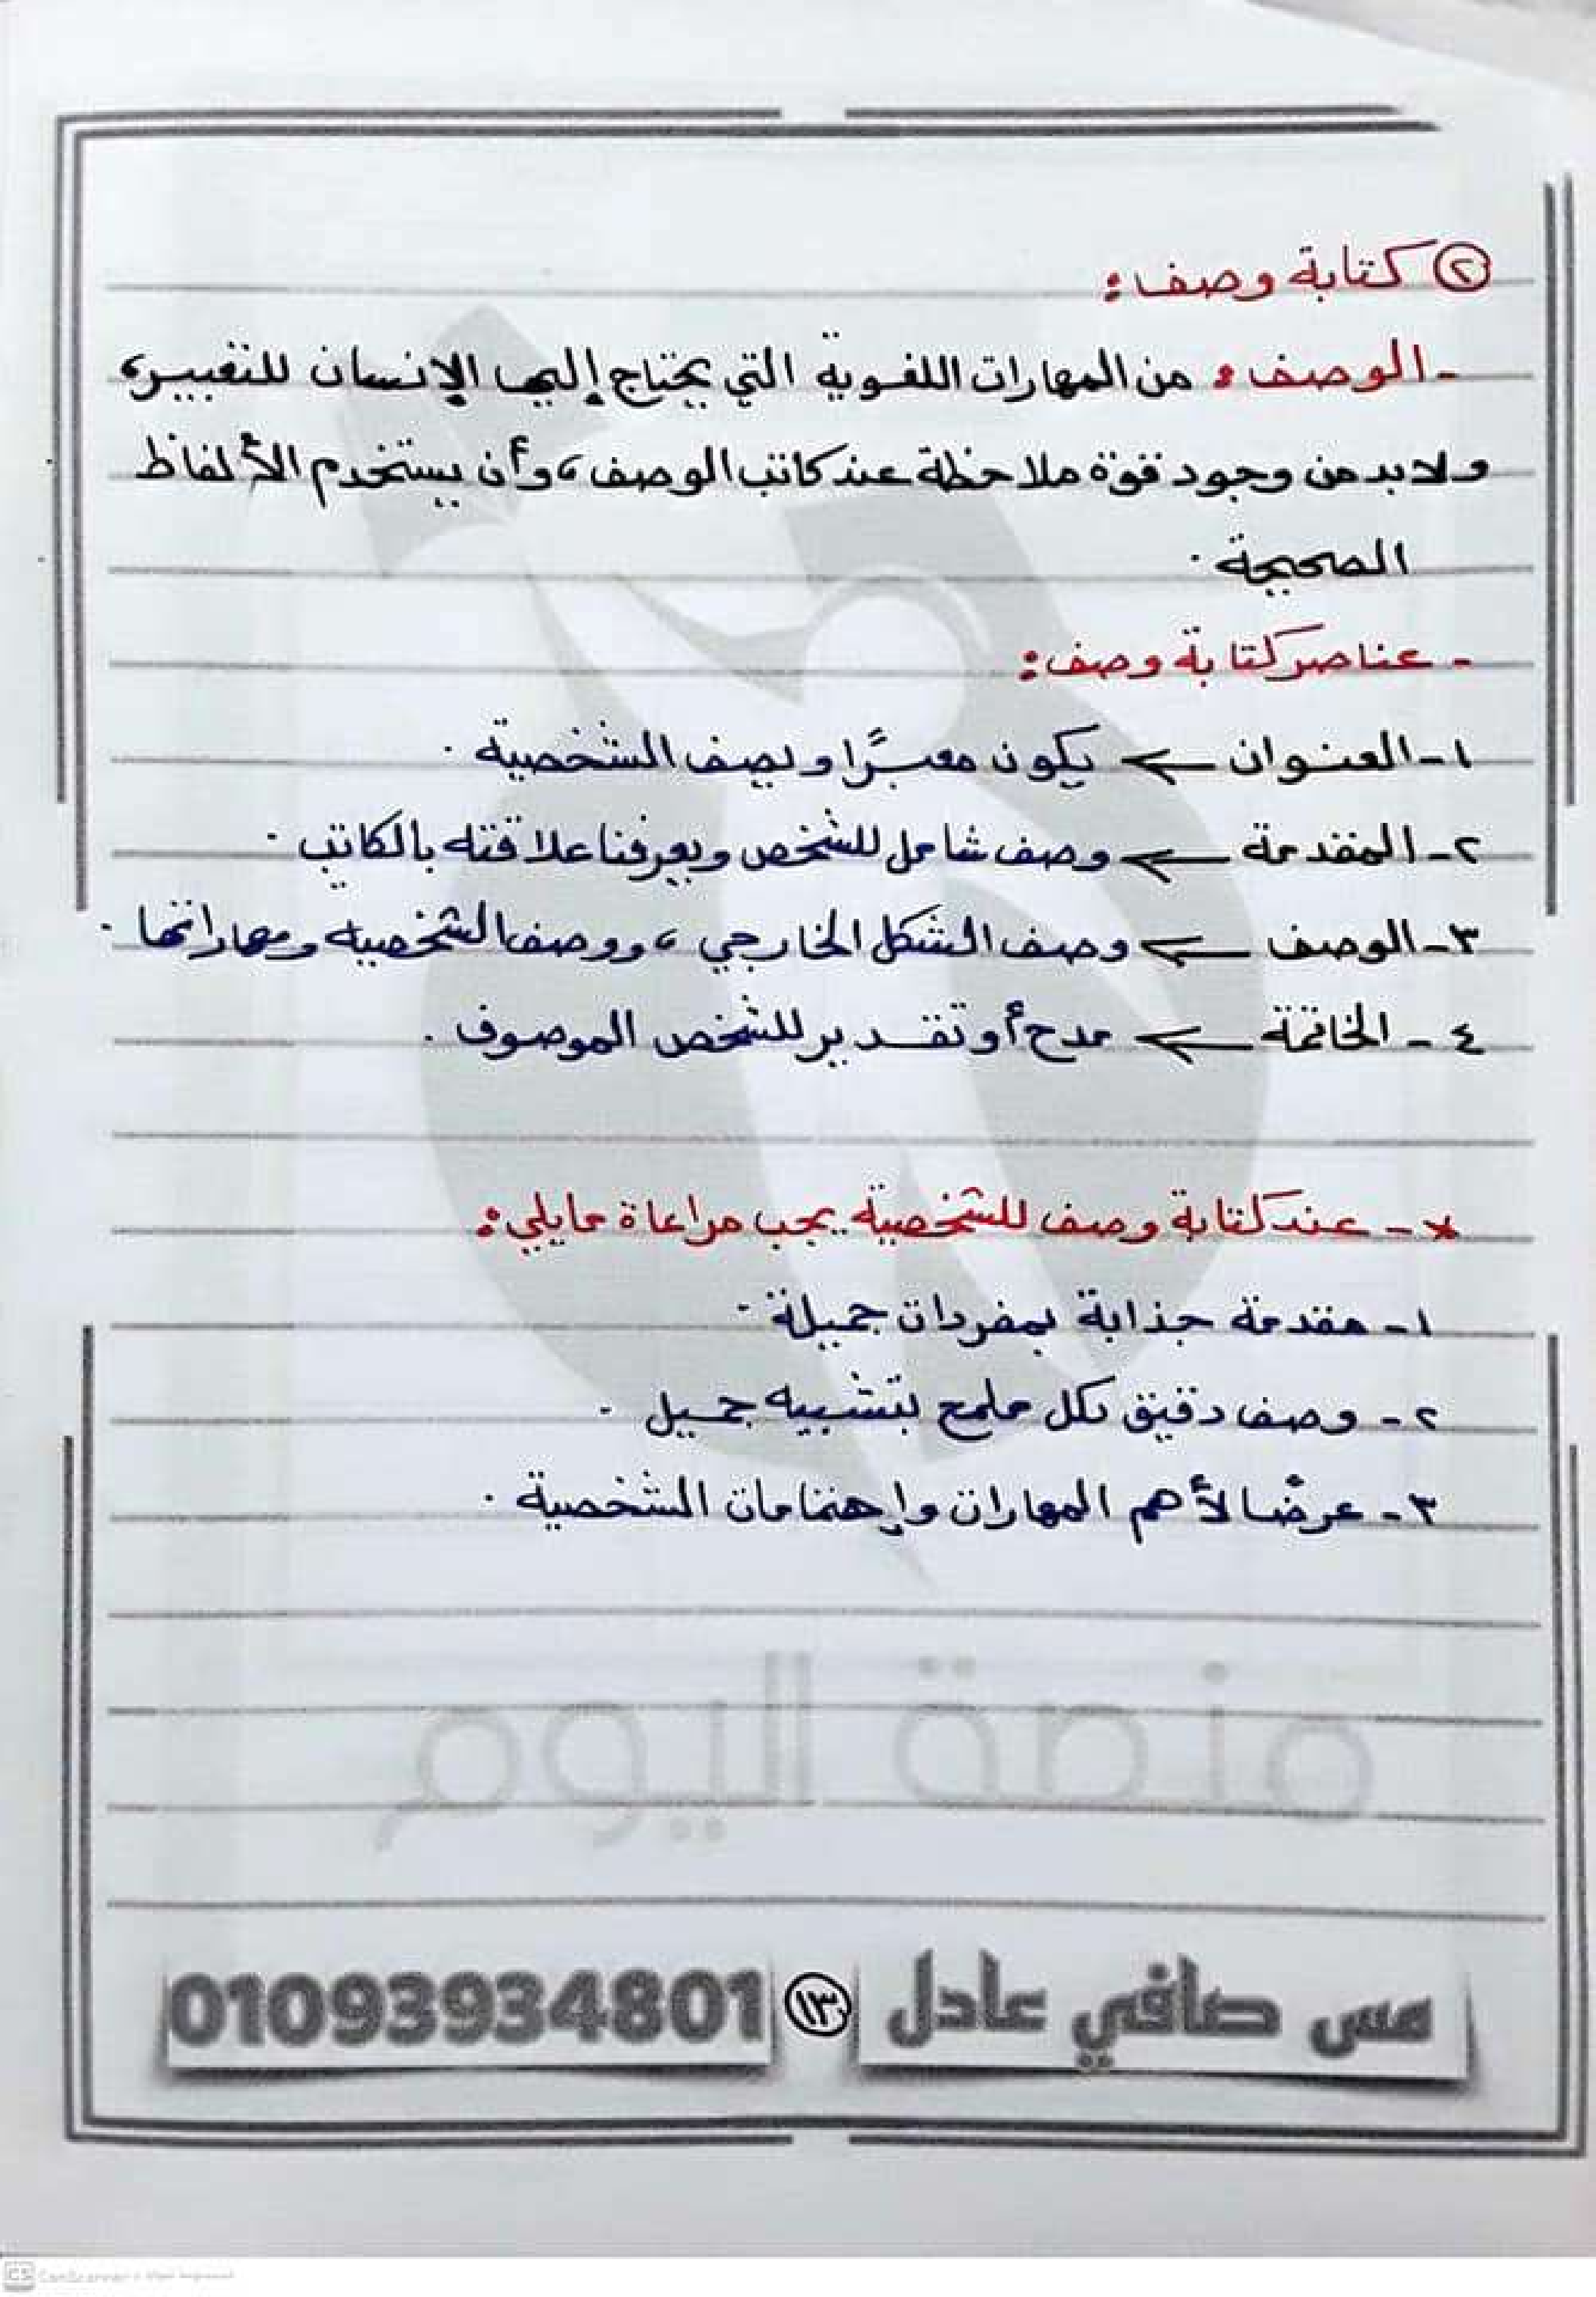 ٢ كتابة وصف:
- الوصف: من المهارات اللغوية التي يحتاج إليها الإنسان للتعبير،
ولابد من وجود قوة ملاحظة عند كاتب الوصف، وأن يستخدم الألفاظ
الصحيحة.
- عناصر كتابة وصف:
١- العنوان ← يكون معبرًا ويصف الشخصية.
٢- المقدمة ← وصف شامل للشخص ويعرفنا علاقته بالكاتب.
٣- الوصف ← وصف الشكل الخارجي، ووصف الشخصية ومهاراتها.
٤- الخاتمة ← مدح أو تقدير للشخص الموصوف.
*- عند كتابة وصف للشخصية يجب مراعاة مايلي:
١- مقدمة جذابة بمفردات جميلة.
٢- وصف دقيق لكل ملمح بتشبيه جميل.
٣- عرضًا لأهم المهارات وإهتمامات الشخصية.
منصة اليوم
مس صافي عادل ١٣ 01093934801
CS CamScanner